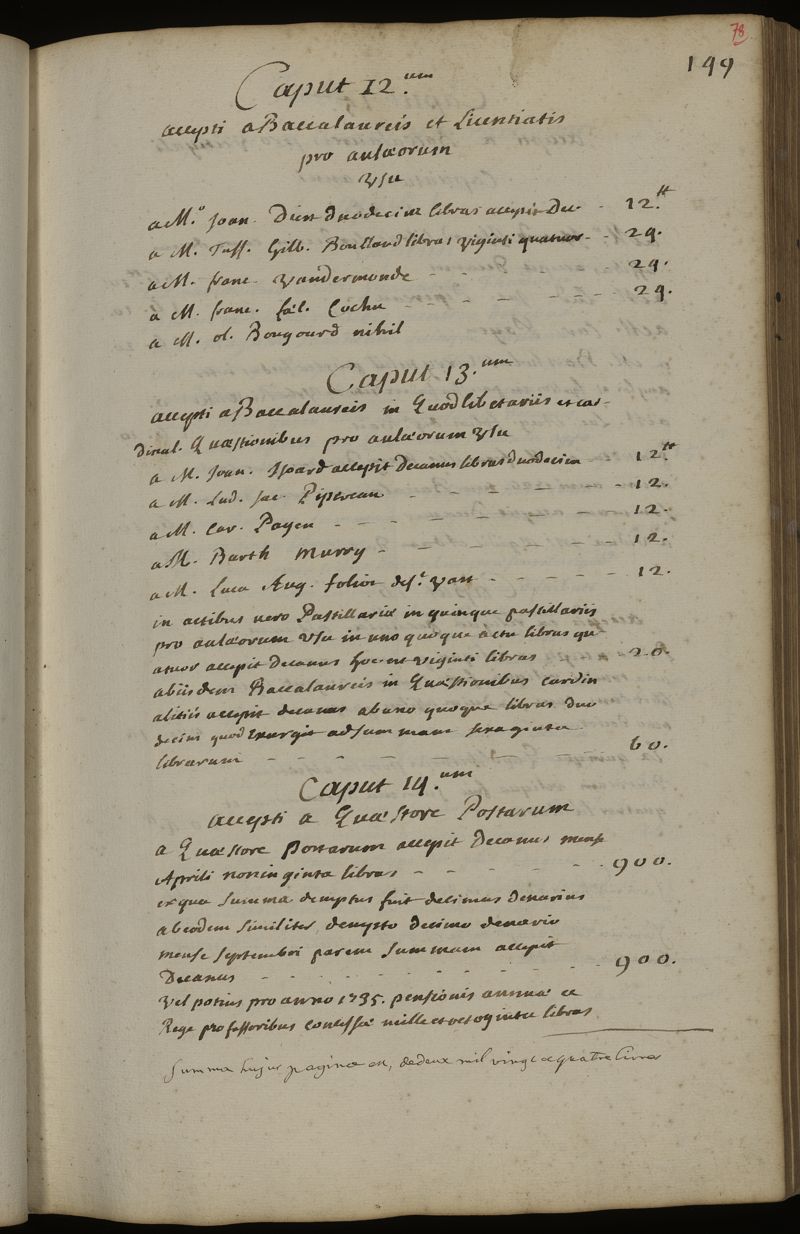 78
149
Caput 12.um
accepti a Baccalaureis et Licentiatis
pro aulæorum
usu
a M.o Joan. Dien duodecim libras accepit Dec. - 12.tt
a M. Tuss. Gilb. Boulland libras viginti quatuor - - 24.
a M. franc. Vandermonde - - 24.
a M. franc. fæl. Cochu - - - - - - - - 24.
a M. ol. Bougourd nihil
Caput 13.um
accepti a Baccalaureis in Quodlibetariis et car-
dinal. Quæstionibus pro aulæorum usu
a M. Joan. Hoard accepit Decanus libras duodecim - - 12.tt
a M. Lud. Jac. Pipereau - - - - - - - 12.
a M. Car. Payen - - - - - - - - 12.
a M. Barth Murry - - - - - - - 12.
a M. Luca Aug. folior des.t vast - - - - - - 12.
in actibus vero Pastillariæ in quinque pastillariis
pro aulæorum usu in uno quoque actu libras qu-
atuor accepit decanus hoc est viginti libras - 20.
ab iisdem Baccalaureis in Quæstionibus cardin
alitiis accepit decanus ab uno quoque libras duo
decim quod exurgit ad summam sexaginta
librarum - - - - - - - - 60.
Caput 14.um
accepti a Quæstore Postarum
a Quæstore Postarum accepit Decanus mense
Aprili nonin ginta libras - - - - - - - 900.
ex qua summa demptus fuit decimus denarius
ab eodem similiter dempto decimo denario
mense septembri parem summam accepit
Decanus - - - - - - - - - 900.
Vel potius pro anno 1735. pensionis annuæ a
Rege professoribus concessæ mille et octoginta libras
Summa hujus paginæ est, de deux mil vingt et quatre livres